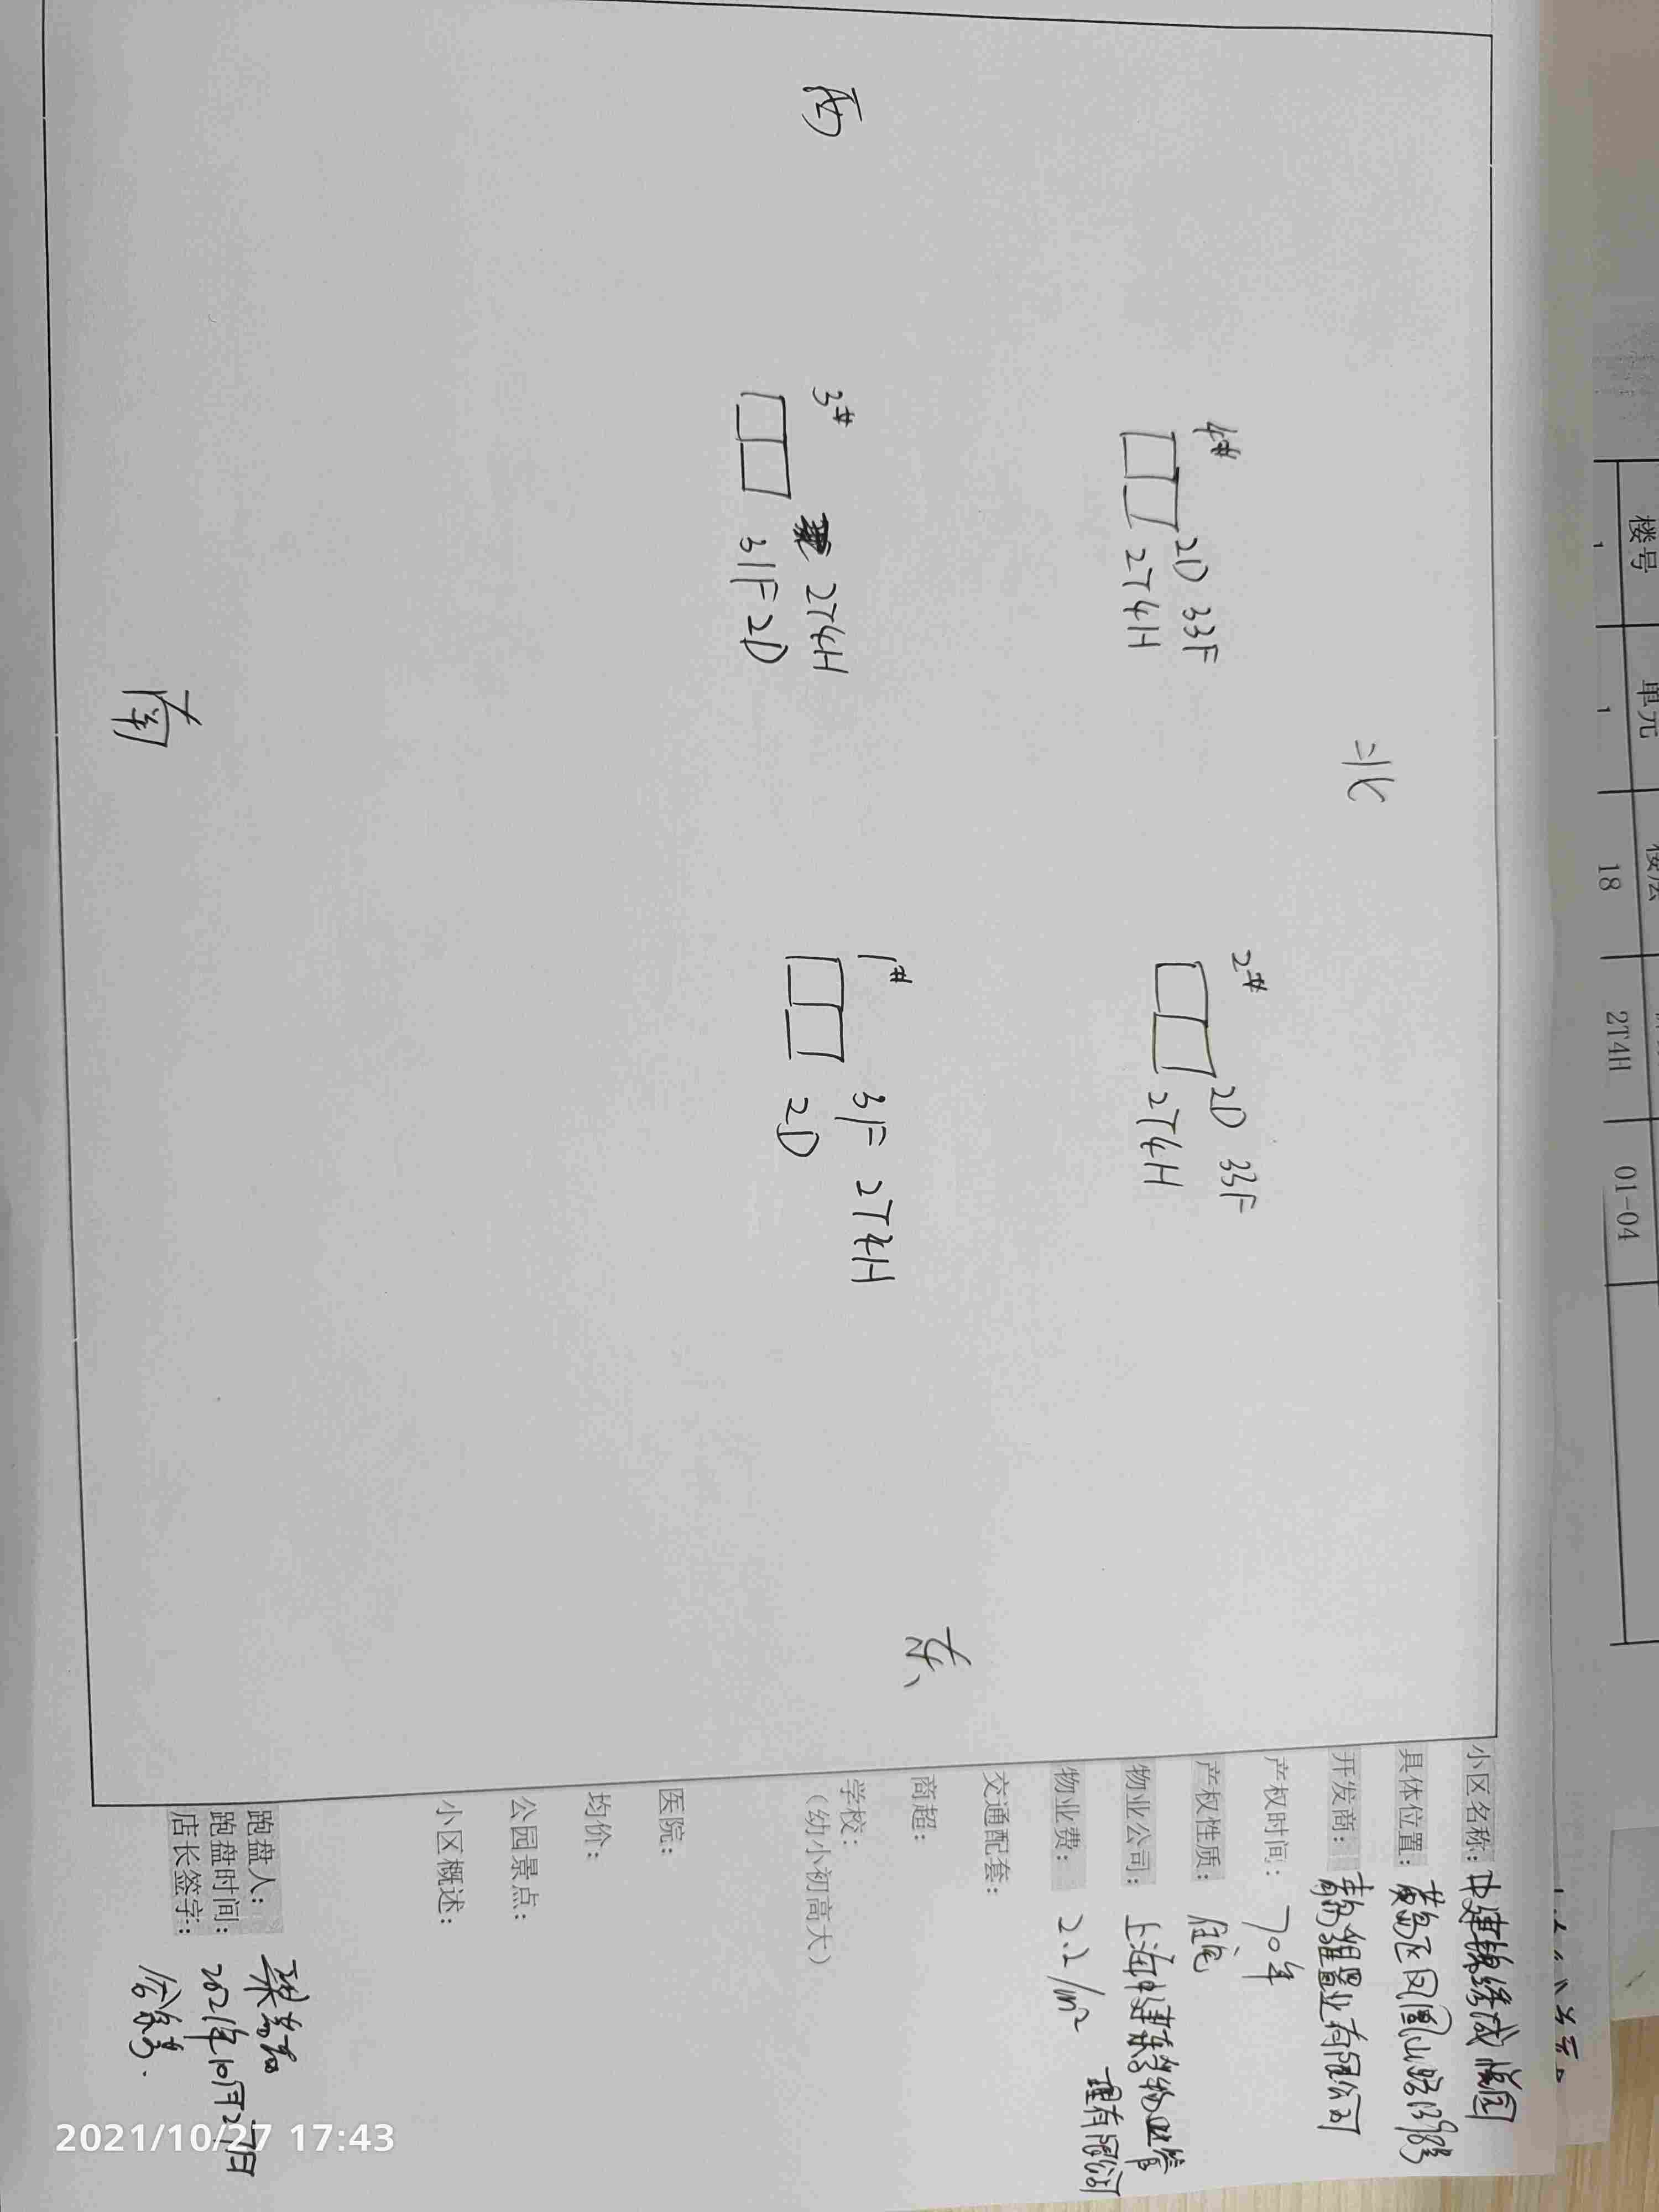 北
西
东
南
4#
2D 33F
2T4H
2#
2D 33F
2T4H
3#
2T4H
31F 2D
1#
31F 2T4H
2D
小区名称:中建锦绣城
具体位置:黄岛区凤凰山路
开发商:置业有限公司
产权时间:70年
产权性质:住宅
物业公司:上海中建东孚物业管
理有限公司
物业费:2.2/m²
交通配套:
商超:
学校:
(幼小初高大)
医院:
均价:
公园景点:
小区概述:
跑盘人:
跑盘时间:2021年10月27日
店长签字:
楼号 单元
1 1 18 2T4H 01-04
2021/10/27 17:43